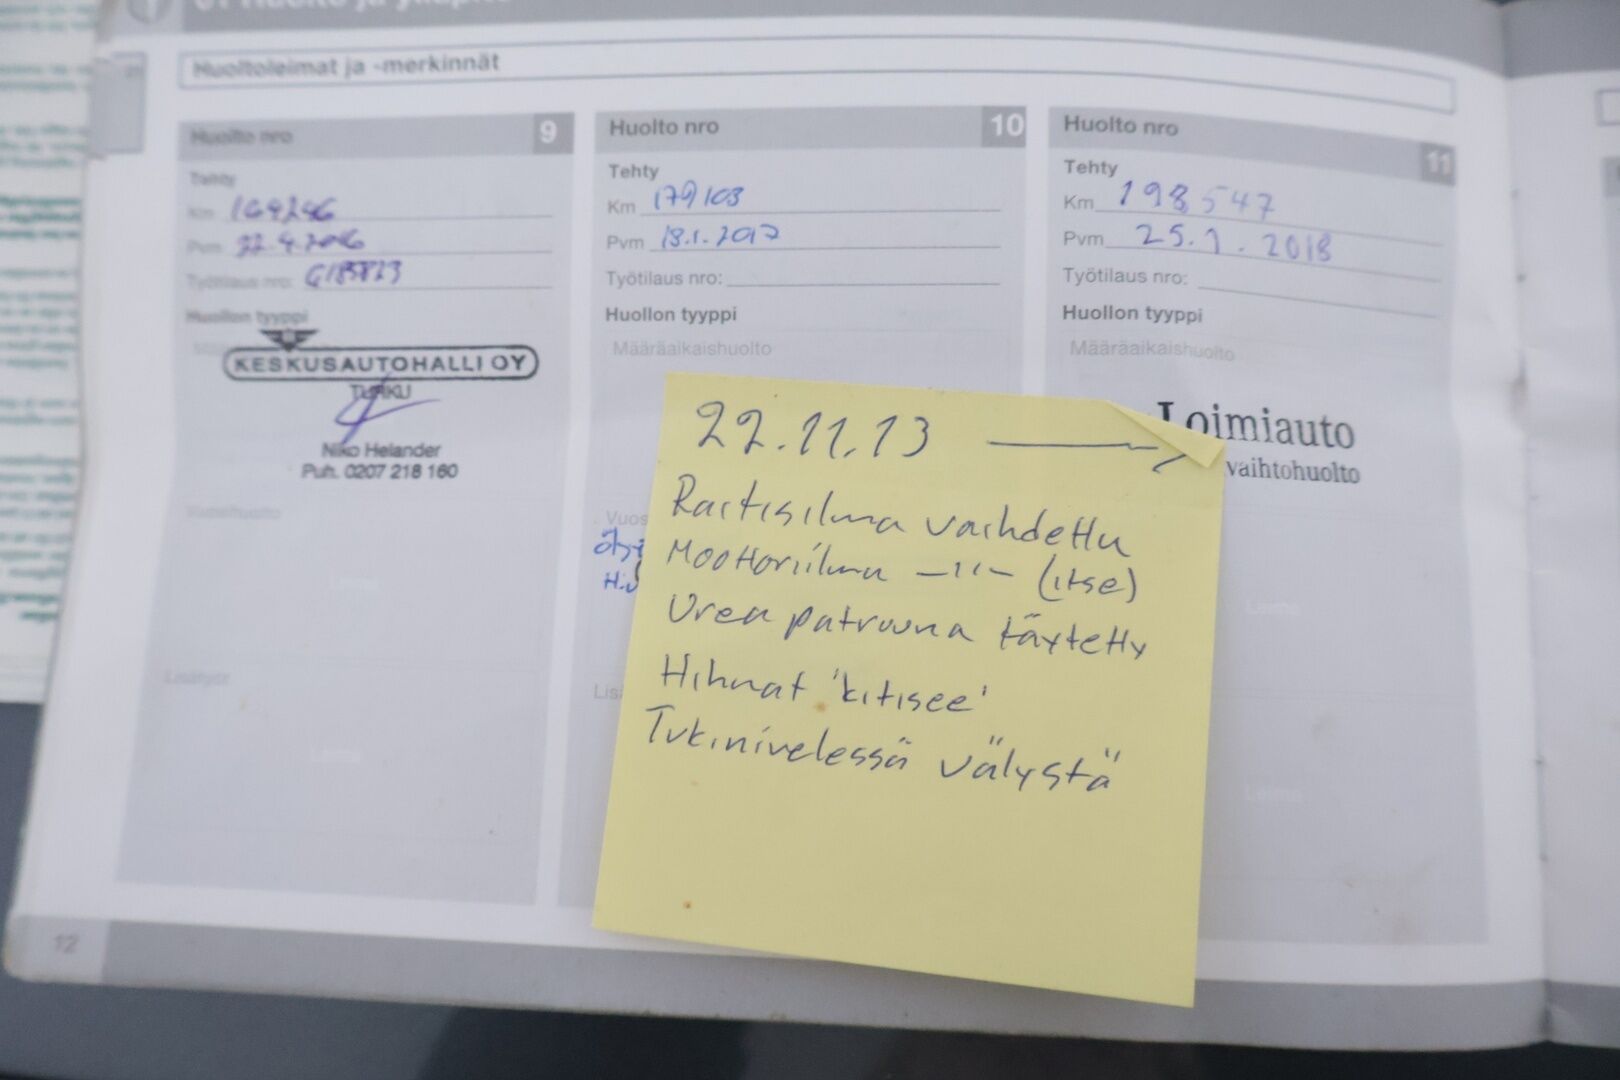 01 Huolto ja
Huoltoleimat ja -merkinnät
Huolto nro 9
Tehty
Km 164246
Pvm 22.4.2016
Työtilaus nro:
Huollon tyyppi
KESKUSAUTOHALLI OY
TURKU
Niko Helander
Puh. 0207 218 160
Vuosihuolto
Leima
Lisätyöt
Leima
12
Huolto nro 10
Tehty
Km 179103
Pvm 18.1.2017
Työtilaus nro:
Huollon tyyppi
Määräaikaishuolto
Vuos
Lis
22.11.13
Raitisilma vaihdettu
Moottoriilma -"- (itse)
Urea patruuna täytetty
Hihnat 'kitisee'
Tukinivelessä välystä
Huolto nro 11
Tehty
Km 198547
Pvm 25.1.2018
Työtilaus nro:
Huollon tyyppi
Määräaikaishuolto
Loimiauto
vaihtohuolto
Leima
Leima